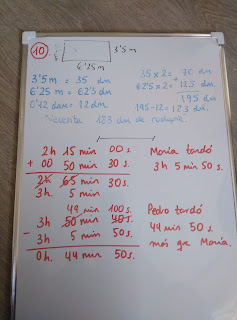 10
3'5 m
6'25 m
3'5 m = 35 dm
6'25 m = 62'5 dm
0'12 dam = 12 dm.
35 x 2 = 70 dm
62'5 x 2 = + 125 dm
195 dm
195-12 = 123 dm.
Necesita 123 dm de rodapié.
2h 15 min 00 s.
+ 00 50 min 30 s.
2h 65 min 30 s.
3h 5 min
María tardó
3h 5 min 50 s.
49 min 100 s.
3h 50 min 40 s.
- 3h 5 min 50 s.
0h. 44 min 50 s.
Pedro tardó
44 min 50 s
más que María.